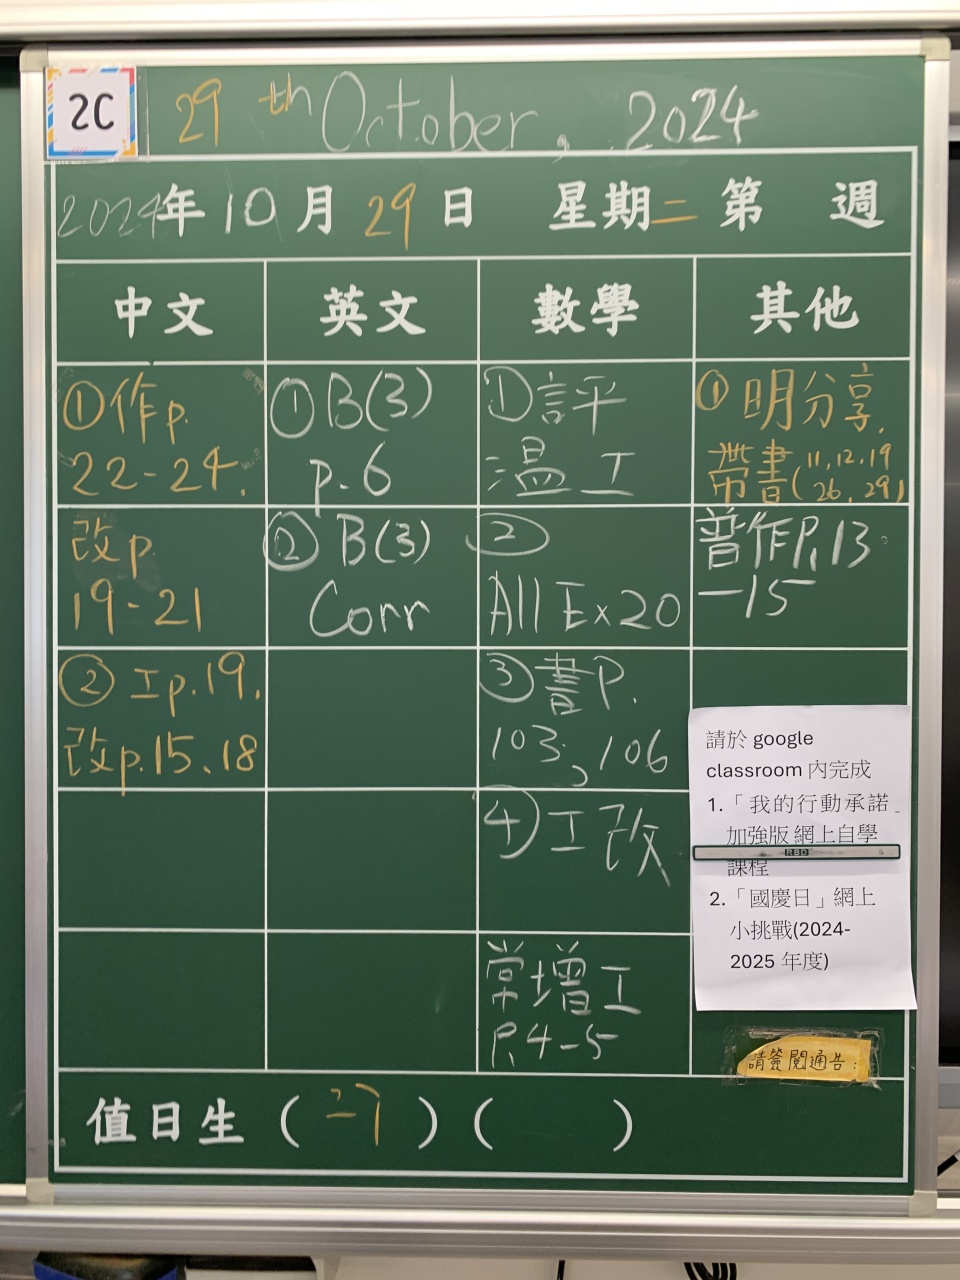 2C
29th October, 2024
2024年10月29日 星期二 第 週
中文 英文 數學 其他
①作p.
22-24.
改p.
19-21
②工p.19.
改p.15、18
①B(3)
p.6
②B(3)
Corr
①評
溫工
②
All Ex20
③書P.
103,106
④工改
常增工
P.4-5
①明分享.
帶書(11,12,19
26,29)
普作P.13
-15
請於 google
classroom 內完成
1.「我的行動承諾
加強版 網上自學
RBD
課程
2.「國慶日」網上
小挑戰(2024-
2025 年度)
請簽閱通告:
值日生( )( )